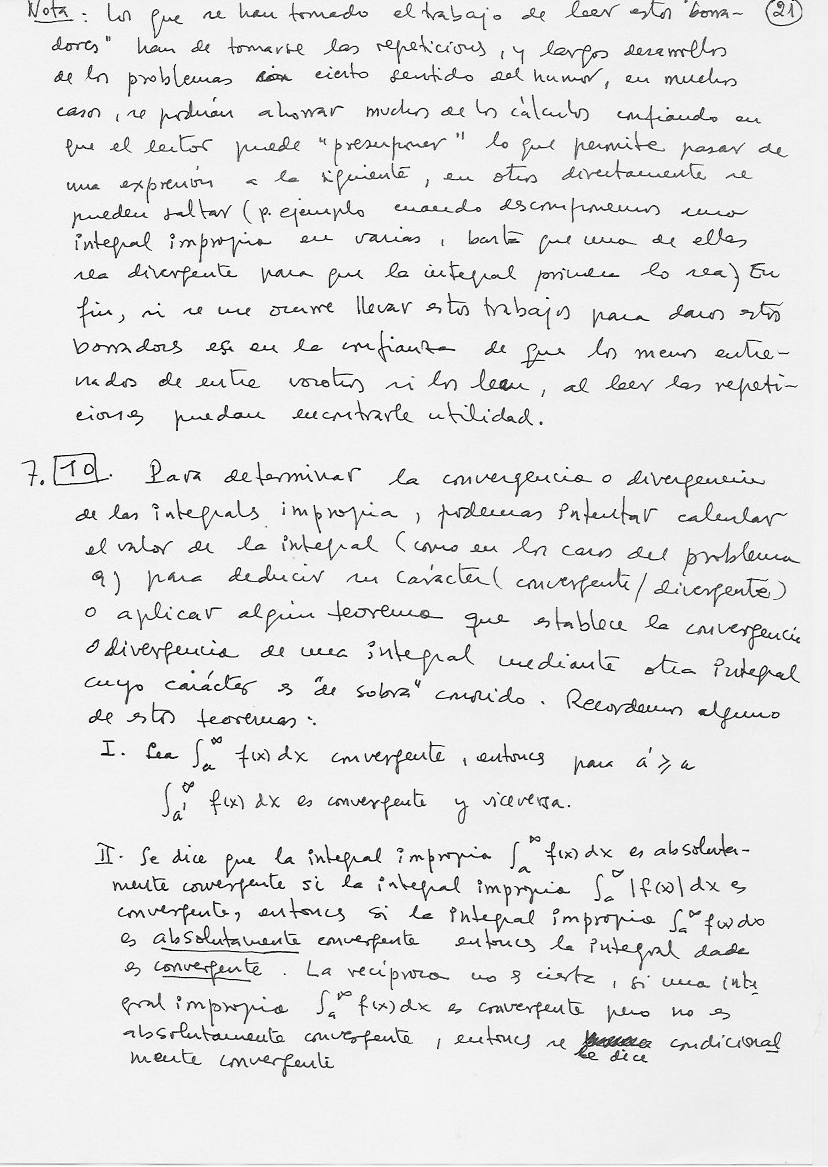 Nota: Los que se han tomado el trabajo de leer estos "borra- 21
dores" han de tomarse las repeticious, y largos desarrollos
de los problemas con cierto sentido del humor, en muchos
casos, se podrían ahorrar muchos de los cálculos confiando en
que el lector puede "presuponer" lo que permite pasar de
una expresión a la siguiente, en otros directamente se
pueden saltar (p. ejemplo cuando descomponemos una
integral impropia en varias, basta que una de ellas
sea divergente para que la integral primera lo sea) En
fin, si se me ocurre llevar estos trabajos para daros estos
borradores es en la confianza de que los menos entre-
nados de entre vosotros si los leen, al leer las repeti-
ciones puedan encontrarle utilidad.
7. 10. Para determinar la convergencia o divergencia
de las integrals impropia, podemos intentar calcular
el valor de la integral (como en los casos del problema
9) para deducir su carácter (convergente/divergente)
o aplicar algún teorema que establece la convergencia
o divergencia de una integral mediante otra integral
cuyo carácter es "de sobra" conocido. Recordemos alguno
de estos teoremas:
I. Sea ∫ₐ^∞ f(x) dx convergente, entonces para a' ⩾ a
∫ₐ'^∞ f(x) dx es convergente y viceversa.
II. Se dice que la integral impropia ∫ₐ^∞ f(x) dx es absoluta-
mente convergente si la integral impropia ∫ₐ^∞ |f(x)| dx es
convergente, entonces si la integral impropia ∫ₐ^∞ f(x) dx
es absolutamente convergente entonces la integral dada
es convergente. La recíproca no es cierta, si una inte
gral impropia ∫ₐ^∞ f(x) dx es convergente pero no es
absolutamente convergente, entonces se le dice condicional
mente convergente